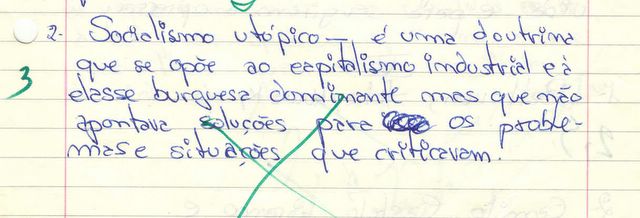 2- Socialismo utópico — é uma doutrina
3 que se opõe ao capitalismo industrial e à
classe burguesa dominante mas que não
apontava soluções para os proble-
mas e situações que criticavam.